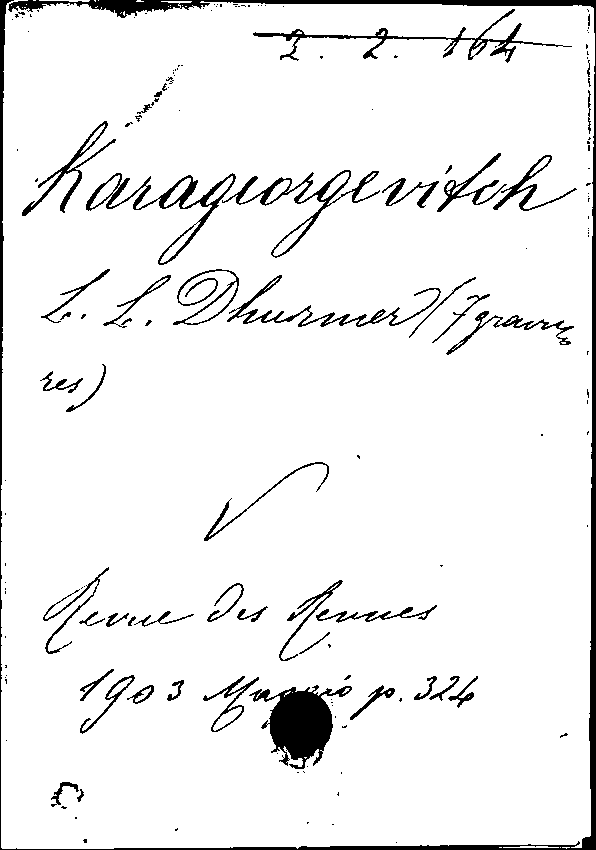 2. 2. 164
Karageorgevitch
L. L. Dhurmer (7 gravu
res)
Revue des Revues
1903 Maggio p. 324